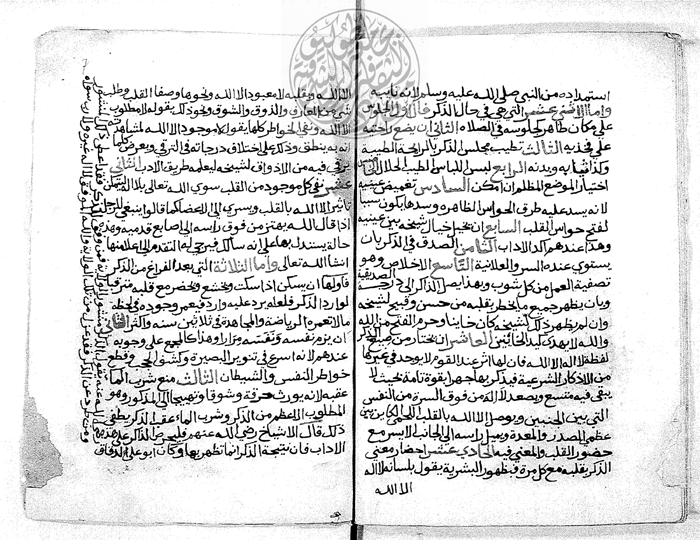 استمداده من النبي صلى الله عليه وسلم لانه نايبه
واما الاثني عشر التي هي في حال الذكر فالاول الجلوس
على مكان طاهر كجلوسه في الصلاه الثاني ان يضع راحتيه
على فخذيه الثالث تطييب مجلس الذكر بالرائحة الطيبة
وكذا ثيابه وبدنه الرابع لبس اللباس الطيب الحلال الخامس
اختيار الموضع المظلم ان امكن السادس تغميض عينيه
لانه يسد عليه طرق الحواس الظاهره وسدها يكون سببا
لفتح حواس القلب السابع ان يخيل خيال شيخه بين عينيه
وهذا عندهم اكد الاداب الثامن الصدق في الذكر بان
يستوي عنده السر والعلانية التاسع الاخلاص وهو
تصفية العمل من كل شوب وبهذا يصل الذاكر الى درجة الصديقية
وبان يظهر جميع ما يخطر بقلبه من حسن وقبيح لشيخه
وان لم يظهر ذلك لشيخه كان خاينا وحرم الفتح من الله
والله لا يهدي كيد الخائنين العاشر ان يختار من صيغ الذكر
لفظة لا اله الا الله فان لها اثر عند القوم لا يوجد في غيرها
من الاذكار الشرعية فيذكر بها جهرا بقوة تامة بحيث لا
يبقى فيه متسع ويصعد لا اله من فوق السرة من النفس
التي بين الجنبين ويوصل الا الله بالقلب اللحمي الكاين بين
عظمي الصدر والمعدة ويميل راسه الى الجانب الايسر مع
حضور القلب والمعنى فيه الحادي عشر احضار معنى
الذكر بقلبه مع كل مرة فبظهور البشرية يقول بلسانه لا اله
الا الله
الا الله وبقلبه لا معبود الا الله ونحوها وصفا القلب وطلب
شي من المعارف والذوق والشوق ونحو ذلك يقول لا مطلوب
الا الله ونفى الخواطر كلها يقول لا موجود الا الله مشاهدة
انه ينطق وذلك على اختلاف درجاته في الترقي ويعرض كلما
ترقى فيه من الاذواق لشيخه ليعلمه طريق الادب الثاني
عشر نفي كل موجود من القلب سوى الله تعالى بلا اله
تاثير الا الله بالقلب ويسري الى الاعضا كما قالوا ينبغي للرجل
اذا قال الله يهتز من فوق راسه الى اصابع قدميه وهذه
حالة يستدل بها على انه سالك فيرجى له التقدم الى اعلا منها
انشا الله تعالى واما الثلاثة التي بعد الفراغ من الذكر
فاولها ان يسكن اذا سكت ويخشع ويحضر مع قلبه مترقبا
لوارد الذكر فلعله يرد عليه وارد فيعمر وجوده في لحظة
ما لا تعمره الرياضة والمجاهدة في ثلاثين سنه واكثر الثاني
ان يزم نفسه ونفسه مرارا وهذا كالمجمع على وجوبه
عندهم لانه اسرع في تنوير البصيرة وكشف الحجب وقطع
خواطر النفس والشيطان الثالث منع شرب الما
عقبه لانه يورث حرقة وشوقا وتهيجا الى المذكور وهو
المطلوب الاعظم من الذكر وشرب الماء عقب الذكر يطفي
ذلك قال الاشياخ رضي الله عنهم فليحرص الذاكر على هذه
الاداب فان نتيجة الذكر انما تظهر بها وكان ابو علي الدقاق